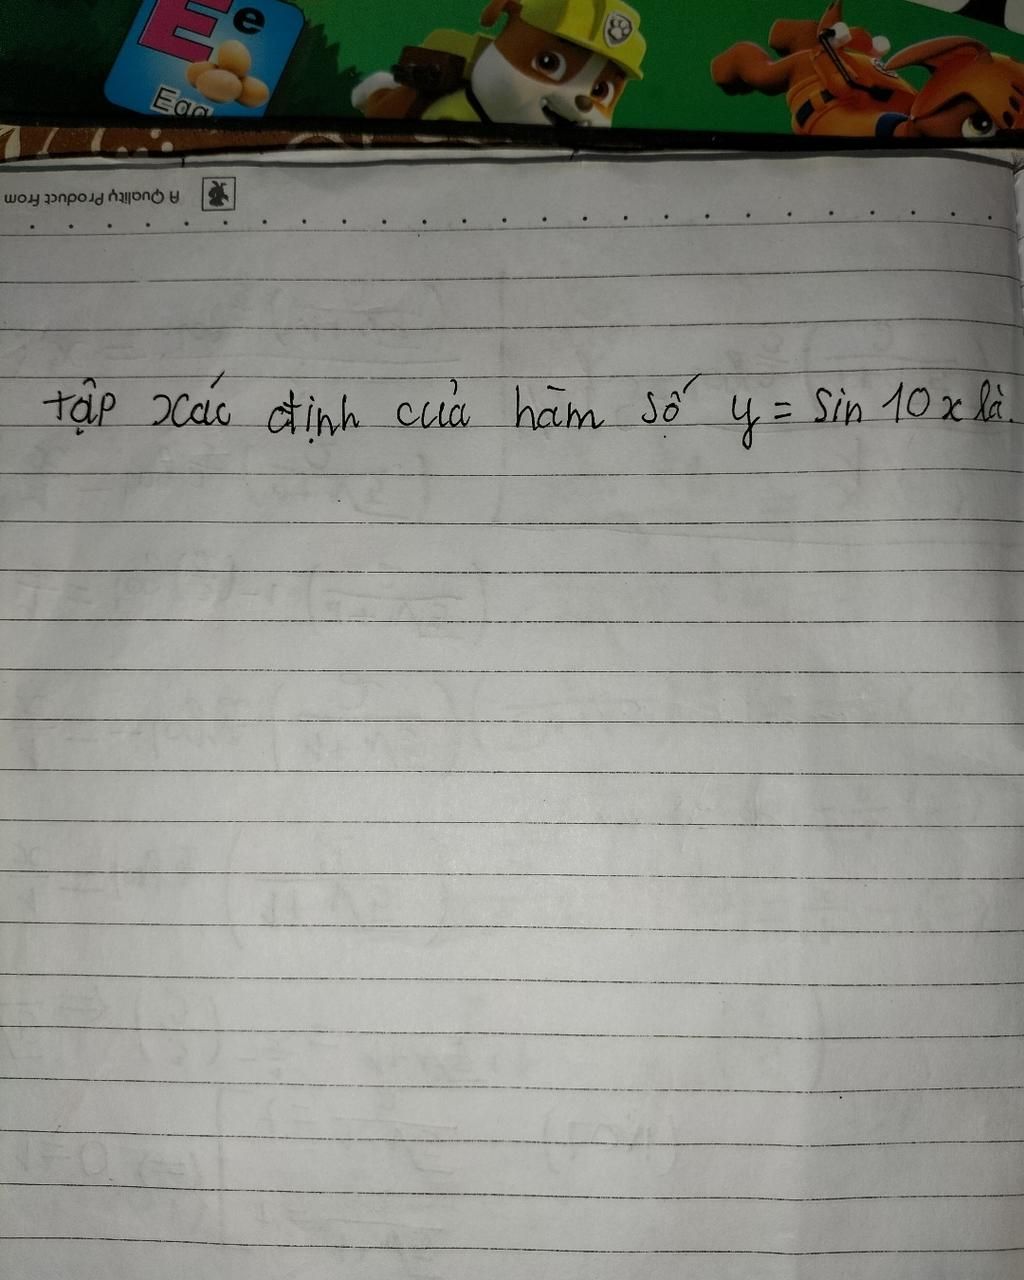 E e
Egg
A Quality Product From
tập xác định của hàm số y = sin 10x là.